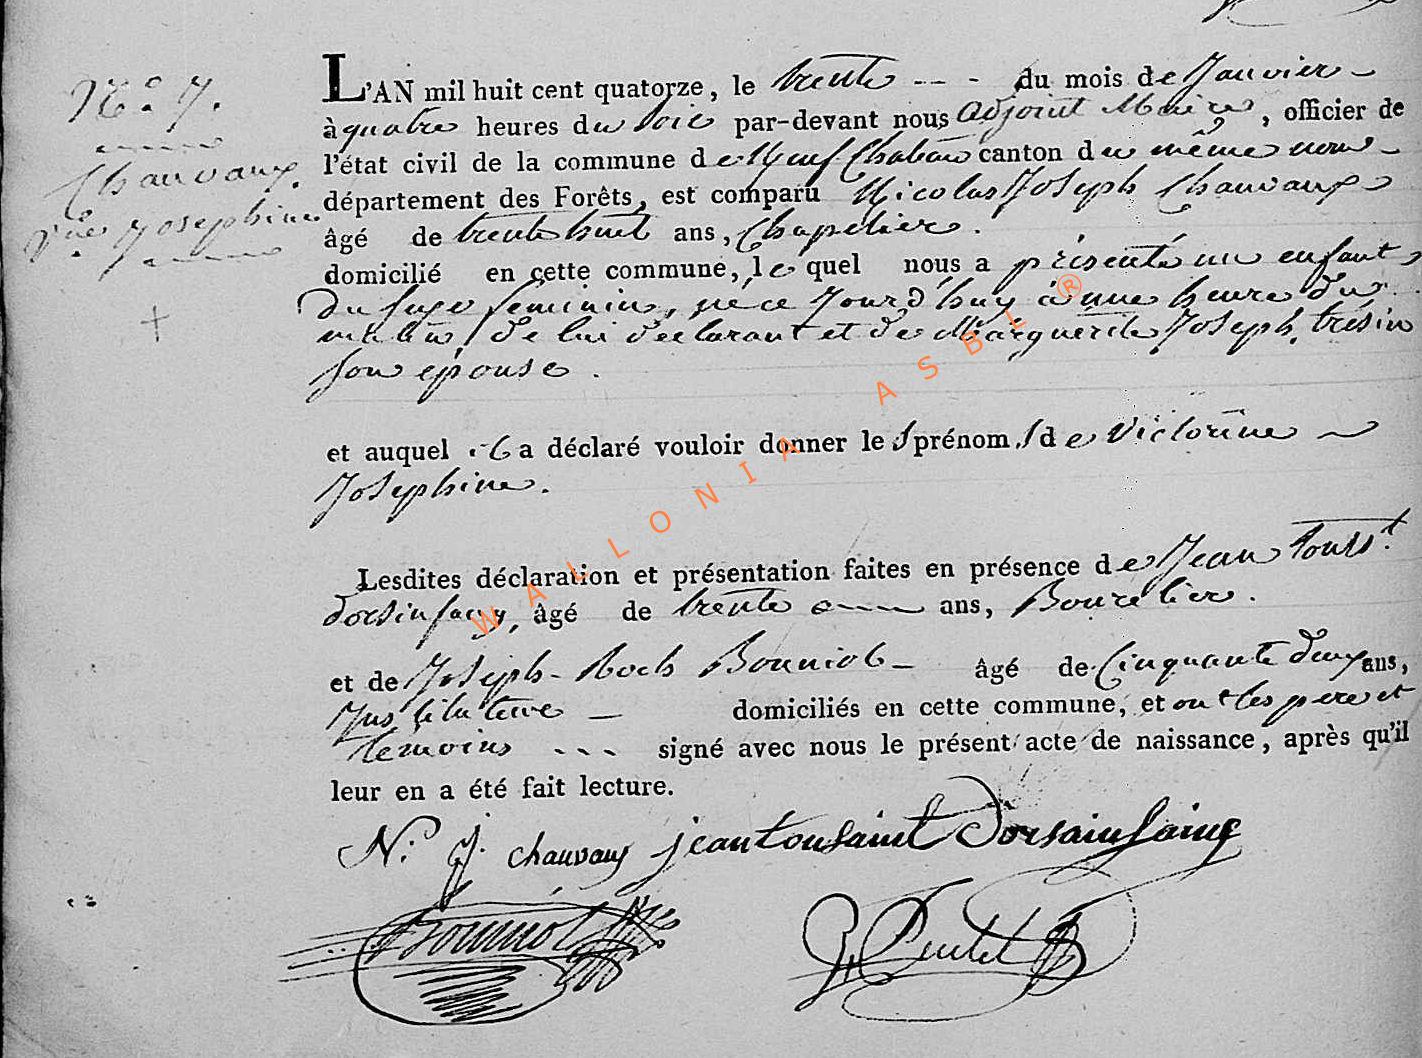 N.° 7.
Chauvaux.
V.ne Josephine.
L'AN mil huit cent quatorze, le trente --- du mois de Janvier
à quatre heures du Soir par-devant nous Adjoint Maire, officier de
l'état civil de la commune de Neuf-Chateau canton du même nom
département des Forêts, est comparu Nicolas Joseph Chauvaux
âgé de trente huit ans, Chapelier.
domicilié en cette commune, le quel nous a présenté un enfant
du sexe feminin, né ce Jourd'huy à une heure du
matin, de lui declarant et de Marguerite Joseph tresin
son epouse.
et auquel il a déclaré vouloir donner les prénoms de Victorine
Josephine.
Lesdites déclaration et présentation faites en présence de Jean Touss.t
dorsinfaing, âgé de trente ans, Bourelier.
et de Joseph-Roch Bonniol âgé de Cinquante deux ans,
Instituteur domiciliés en cette commune, et ont les pere et
temoins --- signé avec nous le présent acte de naissance, après qu'il
leur en a été fait lecture.
N. J. chauvaux jean tousaint Dorsainfaing
Bonniol
WALLONIA ASBL ®